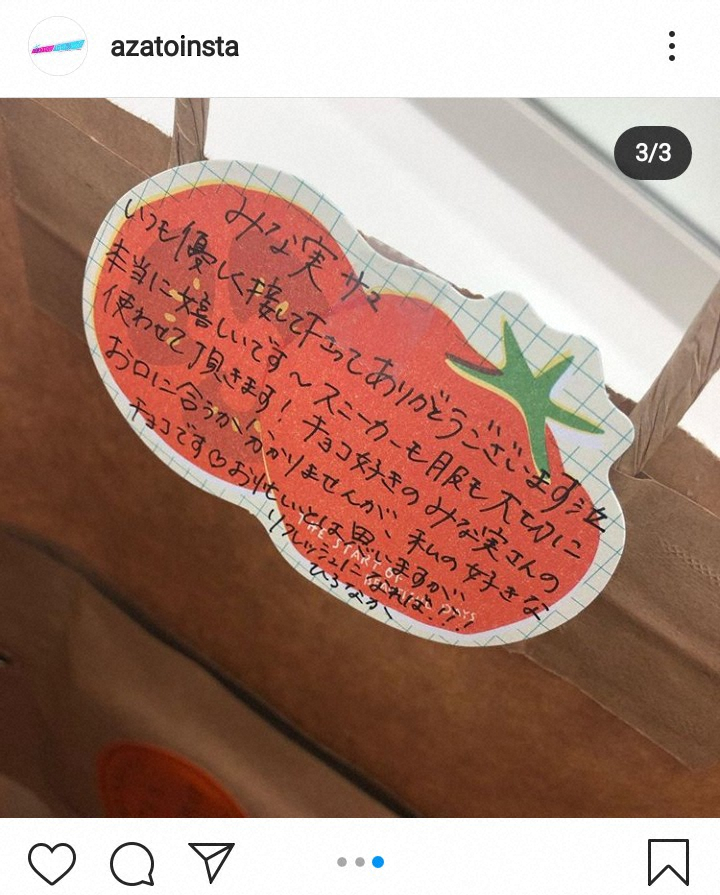 azatoinsta
3/3
みな実サマ
いつも優しく接して下さってありがとうございます泣
本当に嬉しいです〜スニーカーも服も大切に
使わせて頂きます！チョコ好きのみな実さんの
お口に合うか分かりませんが、私の好きな
チョコです♡お忙しいとは思いますが、
リフレッシュになれば!!!
ひろなか
THE START OF
DAYS